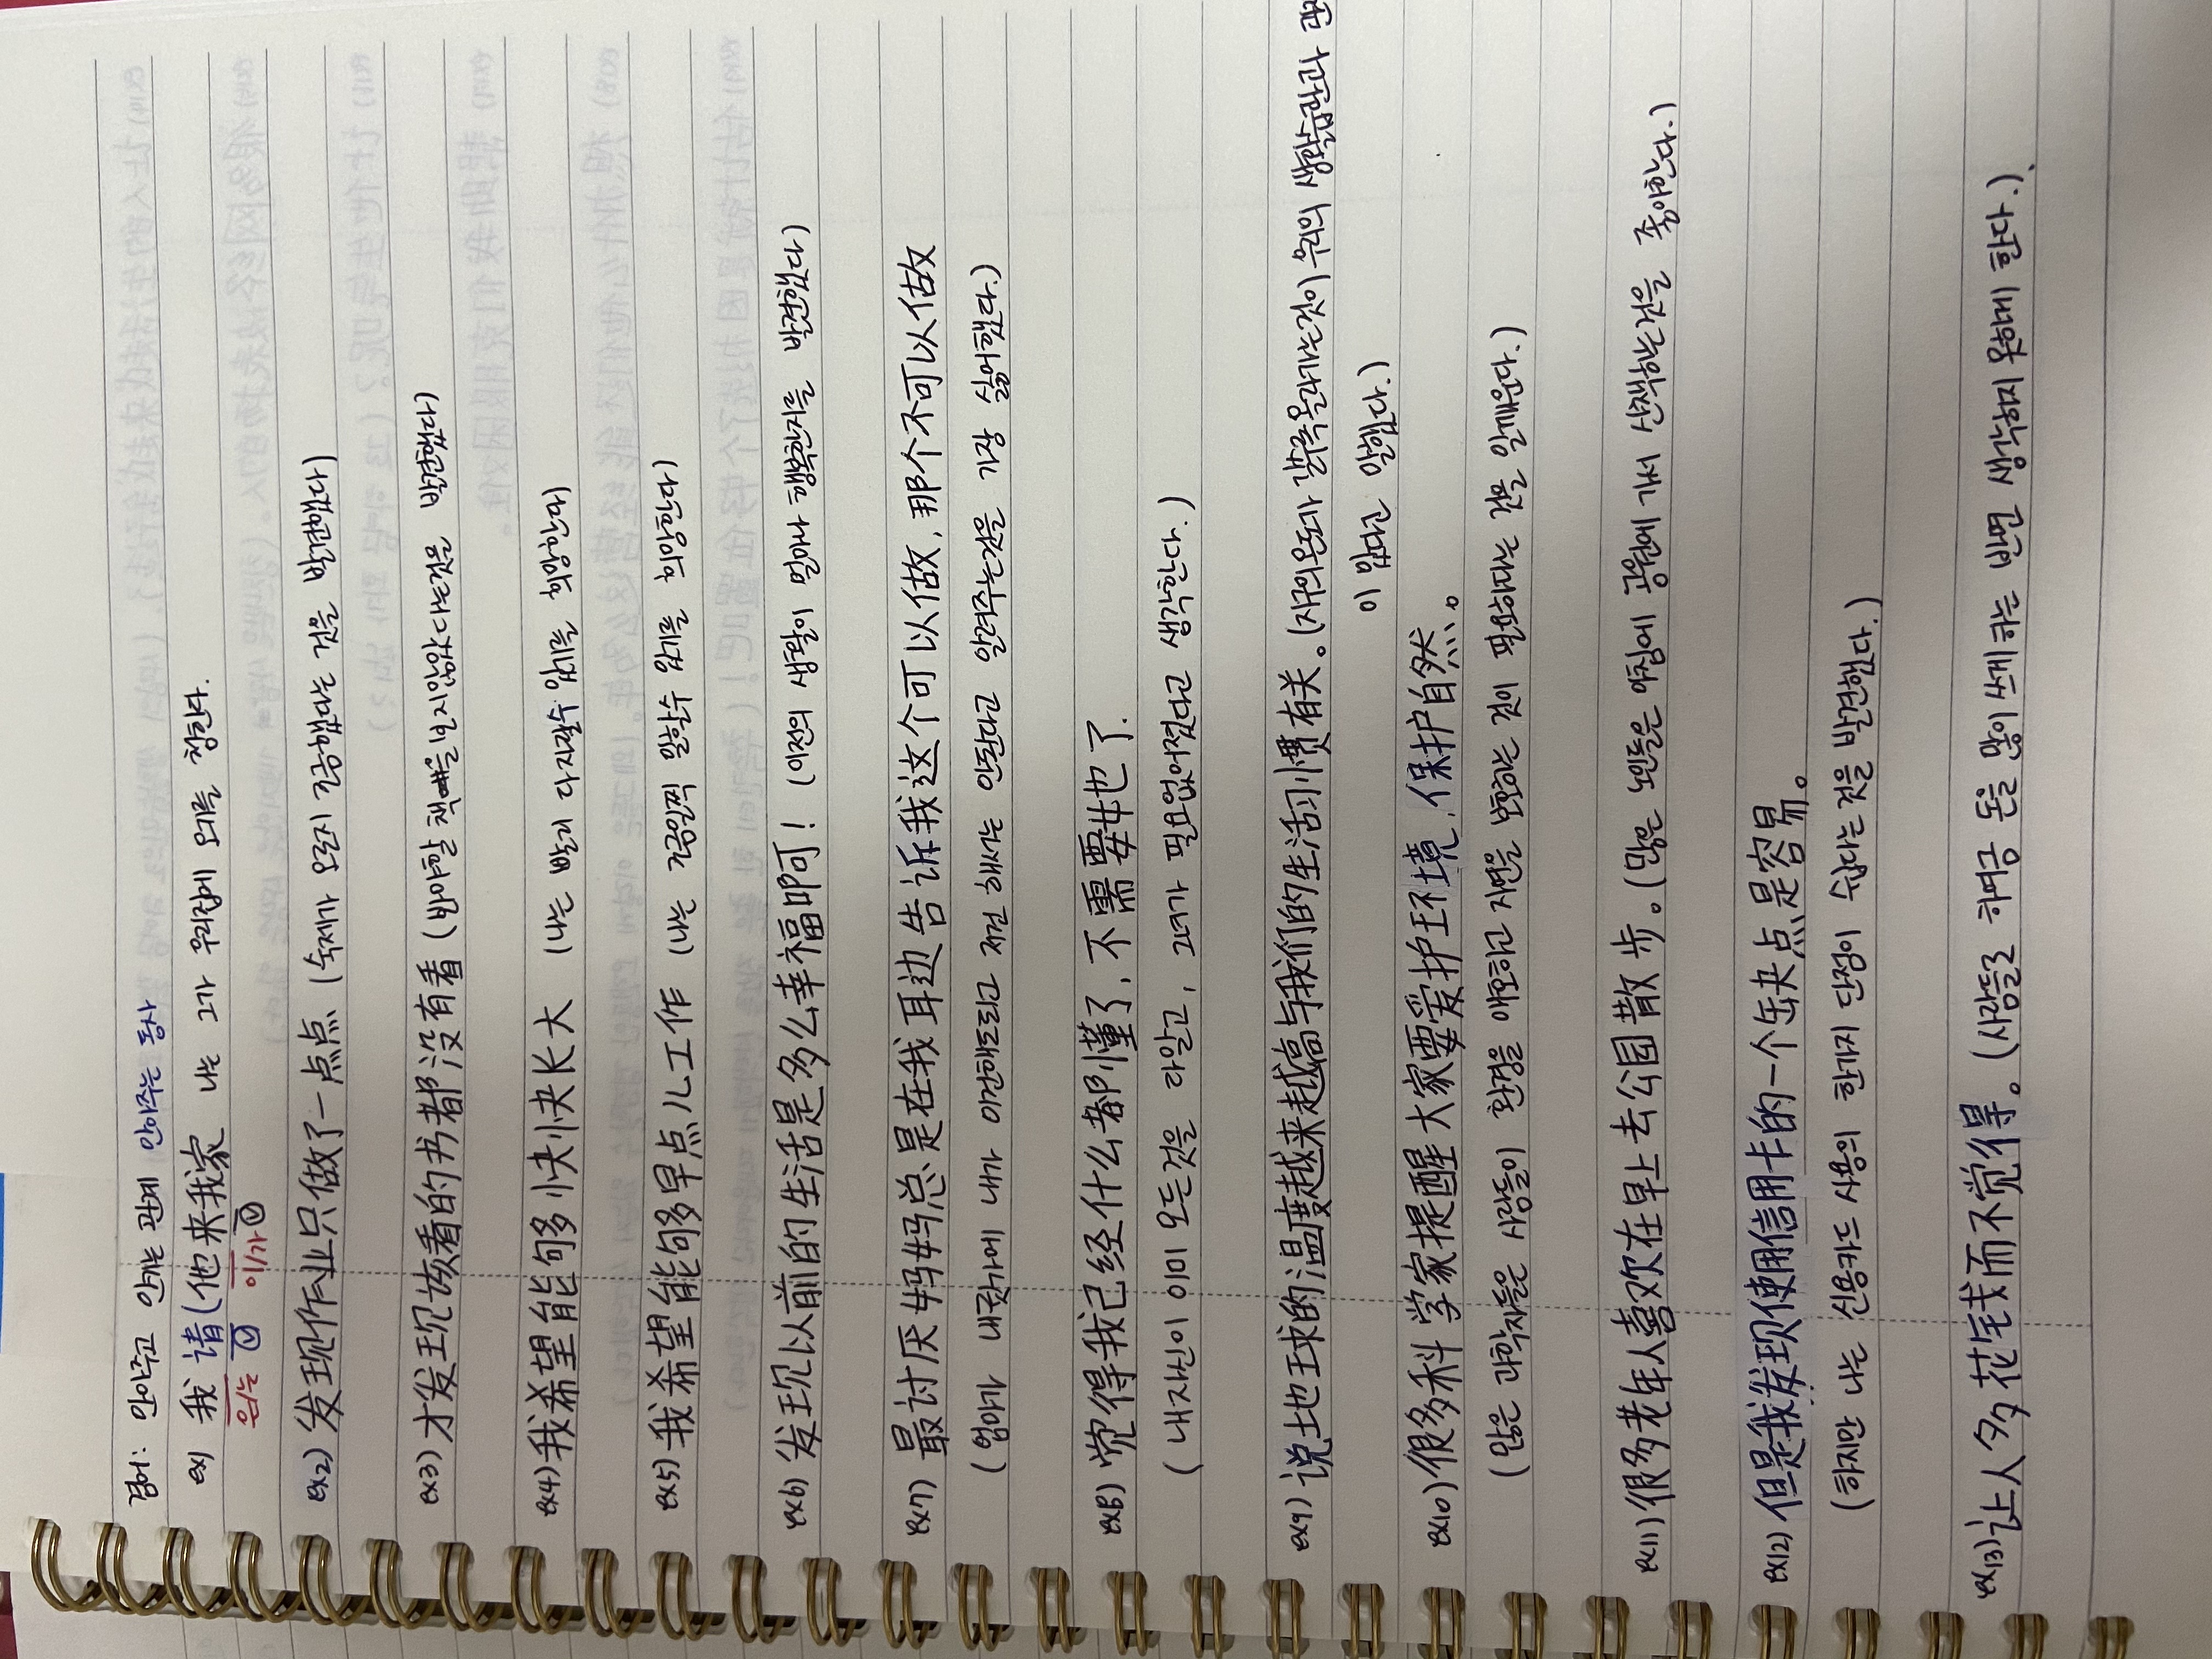 겸어: 안아주고 안기는 관계 안아주는 동사
ex) 我 请 (他来我家 나는 그가 우리집에 오기를 청한다.
은/는 V 이/가 V
ex2) 发现作业只做了一点点 (숙제가 오로지 조금했다는 것을 발견했다)
ex3) 才发现该看的书都没有看 (봐야할 책들을 보지않았다는것을 발견했다)
ex4) 我希望能够快快长大 (나는 빨리 다자랄수 있기를 희망한다)
ex5) 我希望能够早点儿工作 (나는 조금 일찍 일할수 있기를 희망한다)
ex6) 发现以前的生活是多么幸福啊! (이전의 생활이 얼마나 행복한지를 발견했다)
ex7) 最讨厌妈妈总是在我耳边告诉我这个可以做, 那个不可以做
(엄마가 내귓가에 내가 이건해도되고 저건 해서는 안된다고 알려주는것을 가장 싫어했다.)
ex8) 觉得我已经什么都懂了, 不需要她了.
(내자신이 이미 모든것을 다알고, 그녀가 필요없어졌다고 생각한다.)
ex9) 说地球的温度越来越高与我们的生活习惯有关。(지구의온도가 갈수록올라가는것이 우리의 생활습관과 관
이 있다고 말했다.)
ex10) 很多科学家提醒大家要爱护环境, 保护自然。
(많은 과학자들은 사람들이 환경을 애호하고 자연을 보호하는 것이 필요하다는 것을 일깨운다.)
ex11) 很多老年人喜欢在早上去公园散步。(많은 노인들은 아침에 공원에 가서 산책하는것을 좋아한다.)
ex12) 但是我发现使用信用卡的一个缺点是容易。
(하지만 나는 신용카드 사용의 한가지 단점이 쉽다는 것을 발견했다.)
ex13) 让人多花钱而不觉得。(사람들로 하여금 돈을 많이 쓰게 하는 반면 생각하지 못하게 한다.)